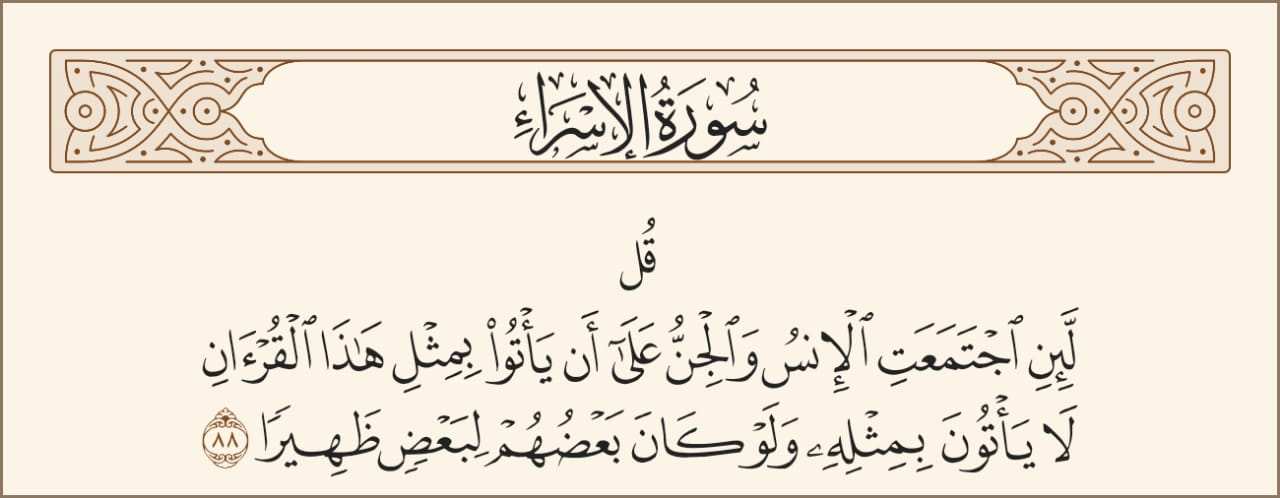 سُورَةُ الإِسۡرَاءِ
قُل
لَّئِنِ ٱجۡتَمَعَتِ ٱلۡإِنسُ وَٱلۡجِنُّ عَلَىٰٓ أَن يَأۡتُواْ بِمِثۡلِ هَٰذَا ٱلۡقُرۡءَانِ
لَا يَأۡتُونَ بِمِثۡلِهِۦ وَلَوۡ كَانَ بَعۡضُهُمۡ لِبَعۡضٖ ظَهِيرٗا ٨٨